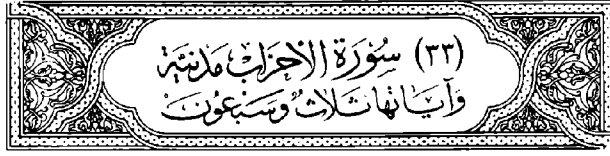 (٣٣) سُوْرَةُ الْأَحْزَابِ مَدَنِيَّة
وَآيَاتُهَا ثَلَاثٌ وَسَبْعُونَ